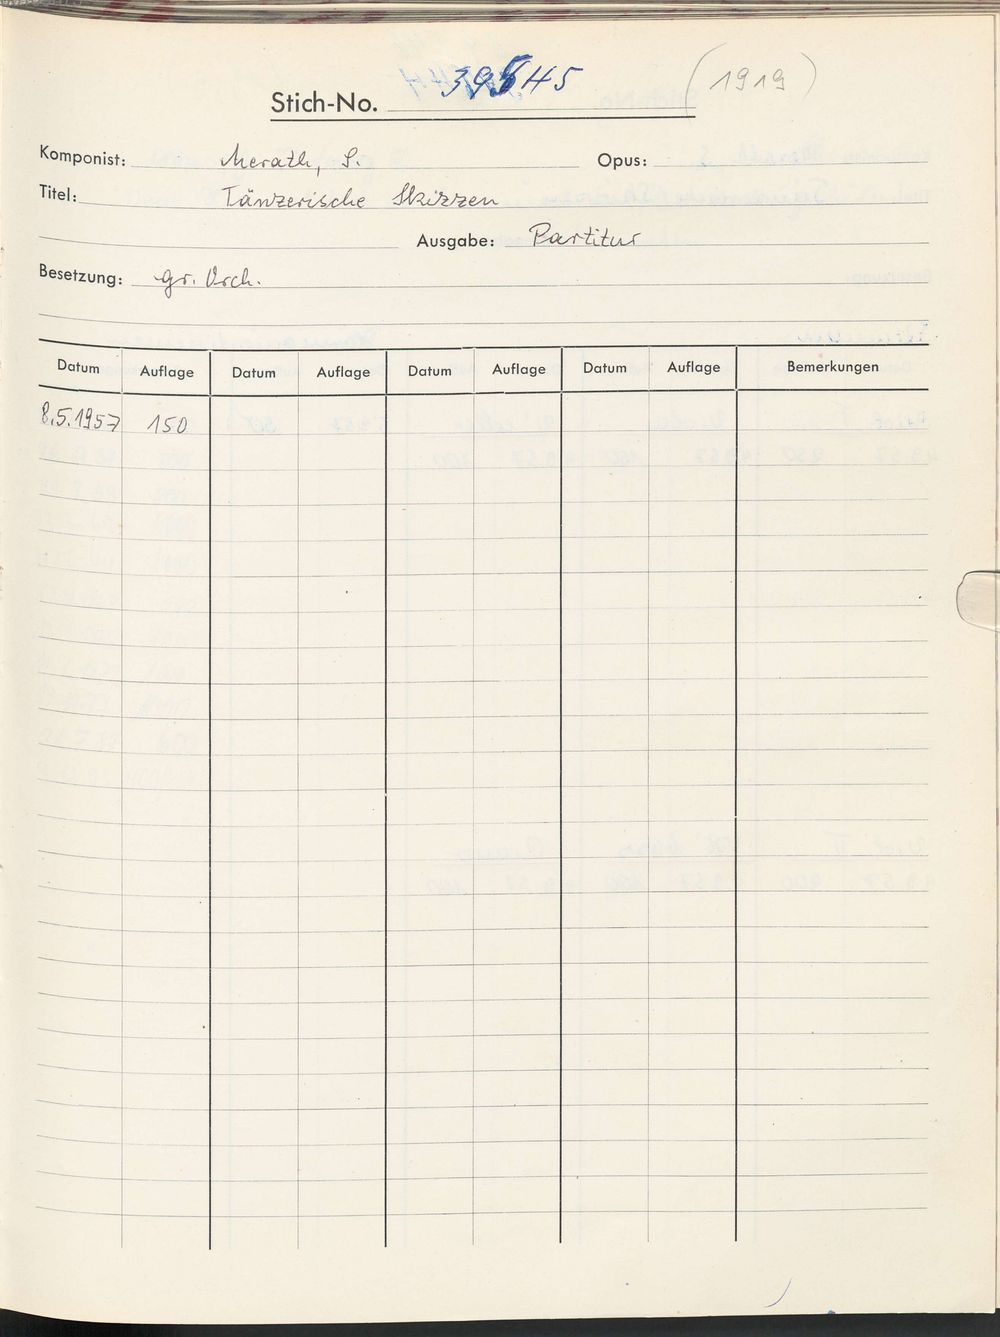 Stich-No. 39545 (1919)
Komponist: Merath, S. Opus:
Titel: Tänzerische Skizzen
Ausgabe: Partitur
Besetzung: gr. Orch.
Datum Auflage Datum Auflage Datum Auflage Datum Auflage Bemerkungen
8.5.1957 150